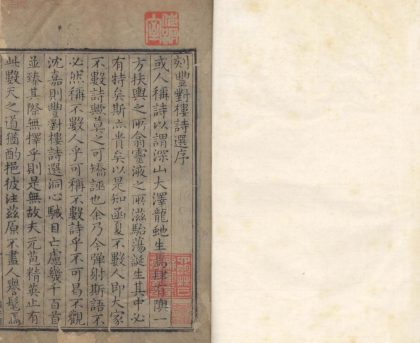 刻豐對樓詩選序
或人稱詩以謂深山大澤龍虵生焉肆有隩一
方扶輿之所翕靈液之所滋駘蕩誕生其中必
有特矣斯亦貴矣以是知函夏不數人即大家
不數詩興莫之可擣誣也余乃今彈射斯語不
必然稱不數人乎可稱不數詩乎不可昜不觀
沈嘉則豐對樓詩選洞心駴目亡慮幾千百首
並臻其際無擇乎則是無故夫元黃精英止有
此數天之道猶酌挹彼注茲原不盡人與